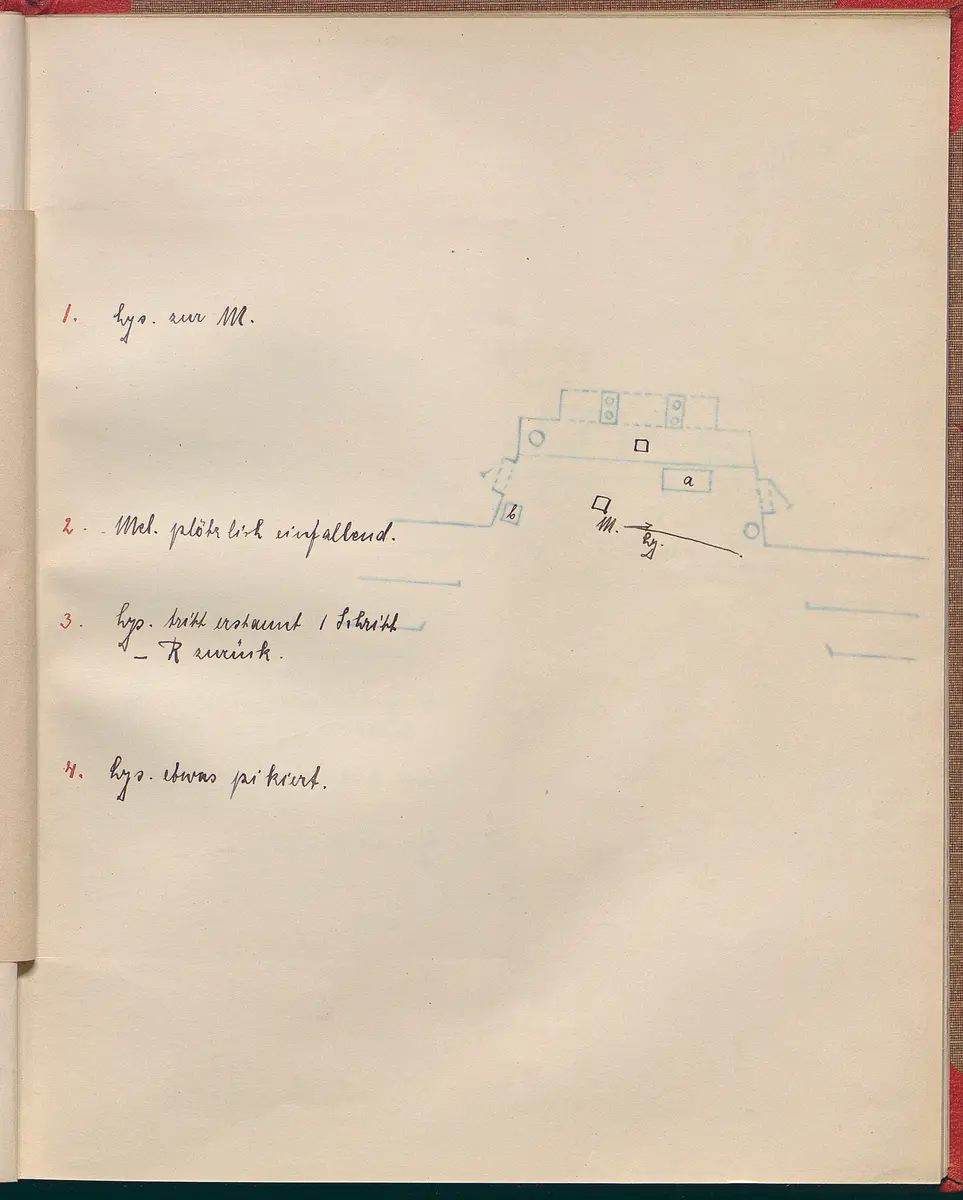 1. Lys. zur M.
a
b
2. Mel. plötzlich einfallend.
M.
Ly.
3. Lys. tritt erstaunt 1 Schritt
– R zurück.
4. Lys. etwas pikiert.